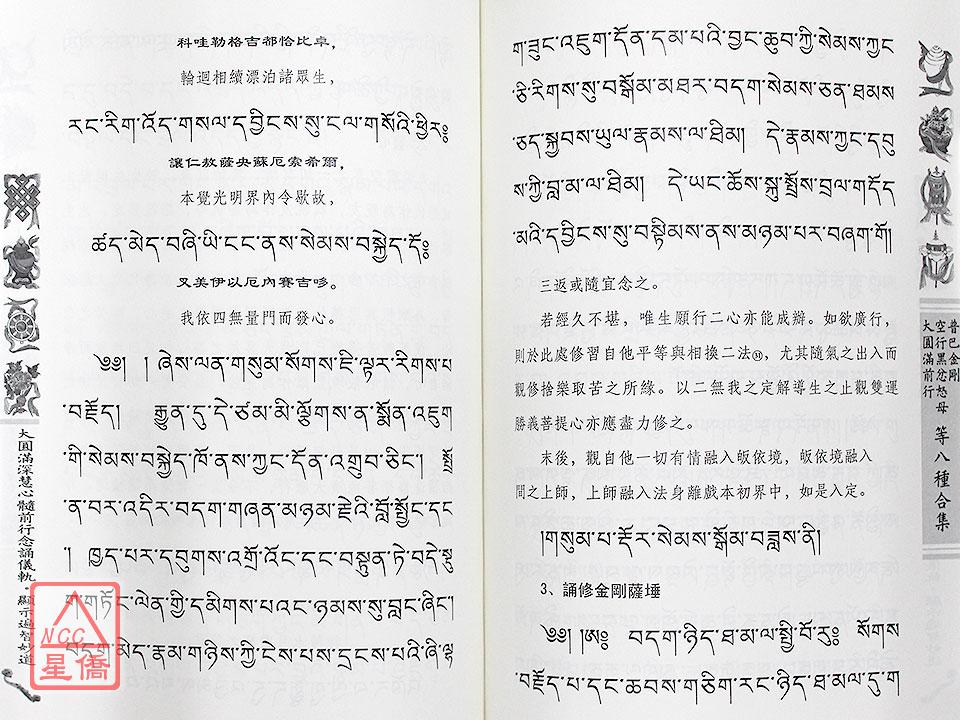 科哇勒格吉都恰比卓，
輪迴相續漂泊諸眾生，
རང་རིག་འོད་གསལ་དབྱིངས་སུ་ངལ་གསོའི་ཕྱིར༔
讓仁敖薩央蘇厄索希爾，
本覺光明界內令歇故，
ཚད་མེད་བཞི་ཡི་ངང་ནས་སེམས་བསྐྱེད་དོ༔
叉美伊以厄內賽吉哆。
我依四無量門而發心。
༄༅། ། ཞེས་ལན་གསུམ་སོགས་ཇི་ལྟར་རིགས་པ
་བརྗོད། རྒྱུན་དུ་དེ་ཙམ་མི་ལྕོགས་ན་སྨོན་འཇུག
་གི་སེམས་བསྐྱེད་ཁོ་ནས་ཀྱང་དོན་འགྲུབ་ཅིང་། སྤྲོ
ན་བར་འདིར་བདག་གཞན་མཉམ་རྗེའི་བློ་སྦྱོང་དང
། ཁྱད་པར་དབུགས་འགྲོ་འོང་དང་བསྟུན་ཏེ་བདེ་སྡུ
ག་གཏོང་ལེན་གྱི་དམིགས་པའང་ཉམས་སུ་བླང་ཞིང་།
བདག་མེད་རྣམ་གཉིས་ཀྱི་ངེས་པས་དྲངས་པའི་ཞི་ལྷ
大圓滿深慧心髓前行念誦儀軌．顯示遍智妙道
NCC
星僑
ག་ཟུང་འཇུག་དོན་དམ་པའི་བྱང་ཆུབ་ཀྱི་སེམས་ཀྱང
་ཅི་རིགས་སུ་བསྒོམ་མཐར་བདག་སེམས་ཅན་ཐམས
་ཅད་སྐྱབས་ཡུལ་རྣམས་ལ་ཐིམ། དེ་རྣམས་ཀྱང་དབུ
ས་ཀྱི་བླ་མ་ལ་ཐིམ། དེ་ཡང་ཆོས་སྐུ་སྤྲོས་བྲལ་གདོད
་མའི་དབྱིངས་སུ་བསྟིམས་ནས་མཉམ་པར་བཞག་གོ།
三返或隨宜念之。
若經久不堪，唯生願行二心亦能成辦。如欲廣行，
則於此處修習自他平等與相換二法，尤其隨氣之出入而
觀修捨樂取苦之所緣。以二無我之定解導生之止觀雙運
勝義菩提心亦應盡力修之。
末後，觀自他一切有情融入皈依境，皈依境融入
間之上師，上師融入法身離戲本初界中，如是入定。
།གསུམ་པ་རྡོར་སེམས་སྒོམ་བཟླས་ནི།
3、誦修金剛薩埵
༄༅། །ཨཿ བདག་ཉིད་ཐ་མལ་སྤྱི་བོ་རུ༔ སོགས
་བརྗོད་པ་དང་ཆབས་གཅིག་རང་ཉིད་ཐ་མལ་དུ་ག
普巴金剛
空行黑忿怒母
大圓滿前行
等八種合集